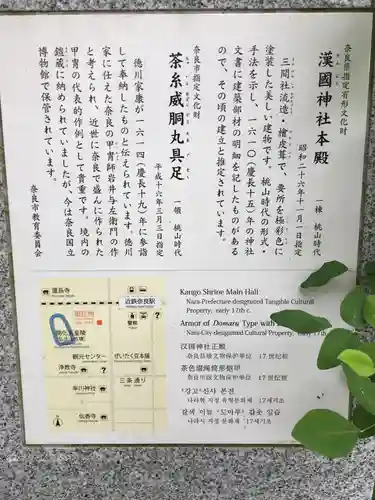 奈良県指定有形文化財
漢國神社本殿 一棟 桃山時代
かん ごう
昭和二十六年十一月一日指定
三間社流造、檜皮葺で、要所を極彩色に
塗装した美しい建物です。桃山時代の形式・
手法を示し、一六一〇(慶長十五)年の神社
文書に建築部材の明細を記したものがある
ので、その頃の建立と推定されています。
奈良市指定文化財
茶糸威胴丸具足 一領 桃山時代
平成十六年三月三日指定
徳川家康が一六一四(慶長十九)年に参詣
して奉納したものと伝えられています。徳川
家に仕えた奈良の甲冑師岩井与左衛門の作
と考えられ、近世に奈良で盛んに作られた
甲冑の代表的作例として貴重です。境内の
鎧蔵に納められていましたが、今は奈良国立
博物館で保管されています。
奈良市教育委員会
蓮長寺
近鉄奈良駅
現在地
漢国神社
警察
観光センター
ぜいたく豆本舗
浄教寺
三条通り
率川神社
伝香寺
Kango Shrine Main Hall
Nara-Prefecture designated Tangible Cultural
Property, early 17th c.
Armor of Domaru Type with
Nara-City designated Cultural
early 17th
汉国神社正殿
奈良县级文物保护单位 17 世纪初
茶色缀绳筒形铠甲
奈良市级文物保护单位 17 世纪初
'강고'신사 본전
나라현 지정 유형문화재 17세기초
갈색 이음 '도마루' 갑옷 실습
나라시 지정 문화재 17세기초